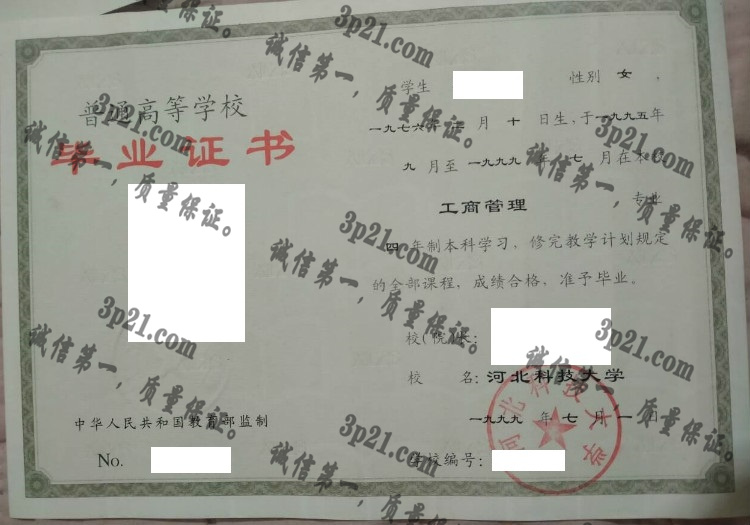 普通高等学校
毕业证书
中华人民共和国教育部监制
No.
学生 性别 女 ,
一九七六年 月 十 日生,于一九九五年
九 月至 一九九九 年 七 月在本校
工商管理 专业
四 年制本科学习,修完教学计划规定
的全部课程,成绩合格,准予毕业。
校(院)长:
校 名:河北科技大学
一九九九 年 七 月 一 日
学校编号:
河北科技大学
质量保证。
3p21.com
诚信第一,质量保证。
3p21.com
诚信第一,质量保证。
3p21.com
诚信第一,质量保证。
3p21.com
诚信第一,质量保证。
3p21.com
诚信第一,质量保证。
3p21.com
诚信第一,质量保证。
3p21.com
诚信第一,质量保证。